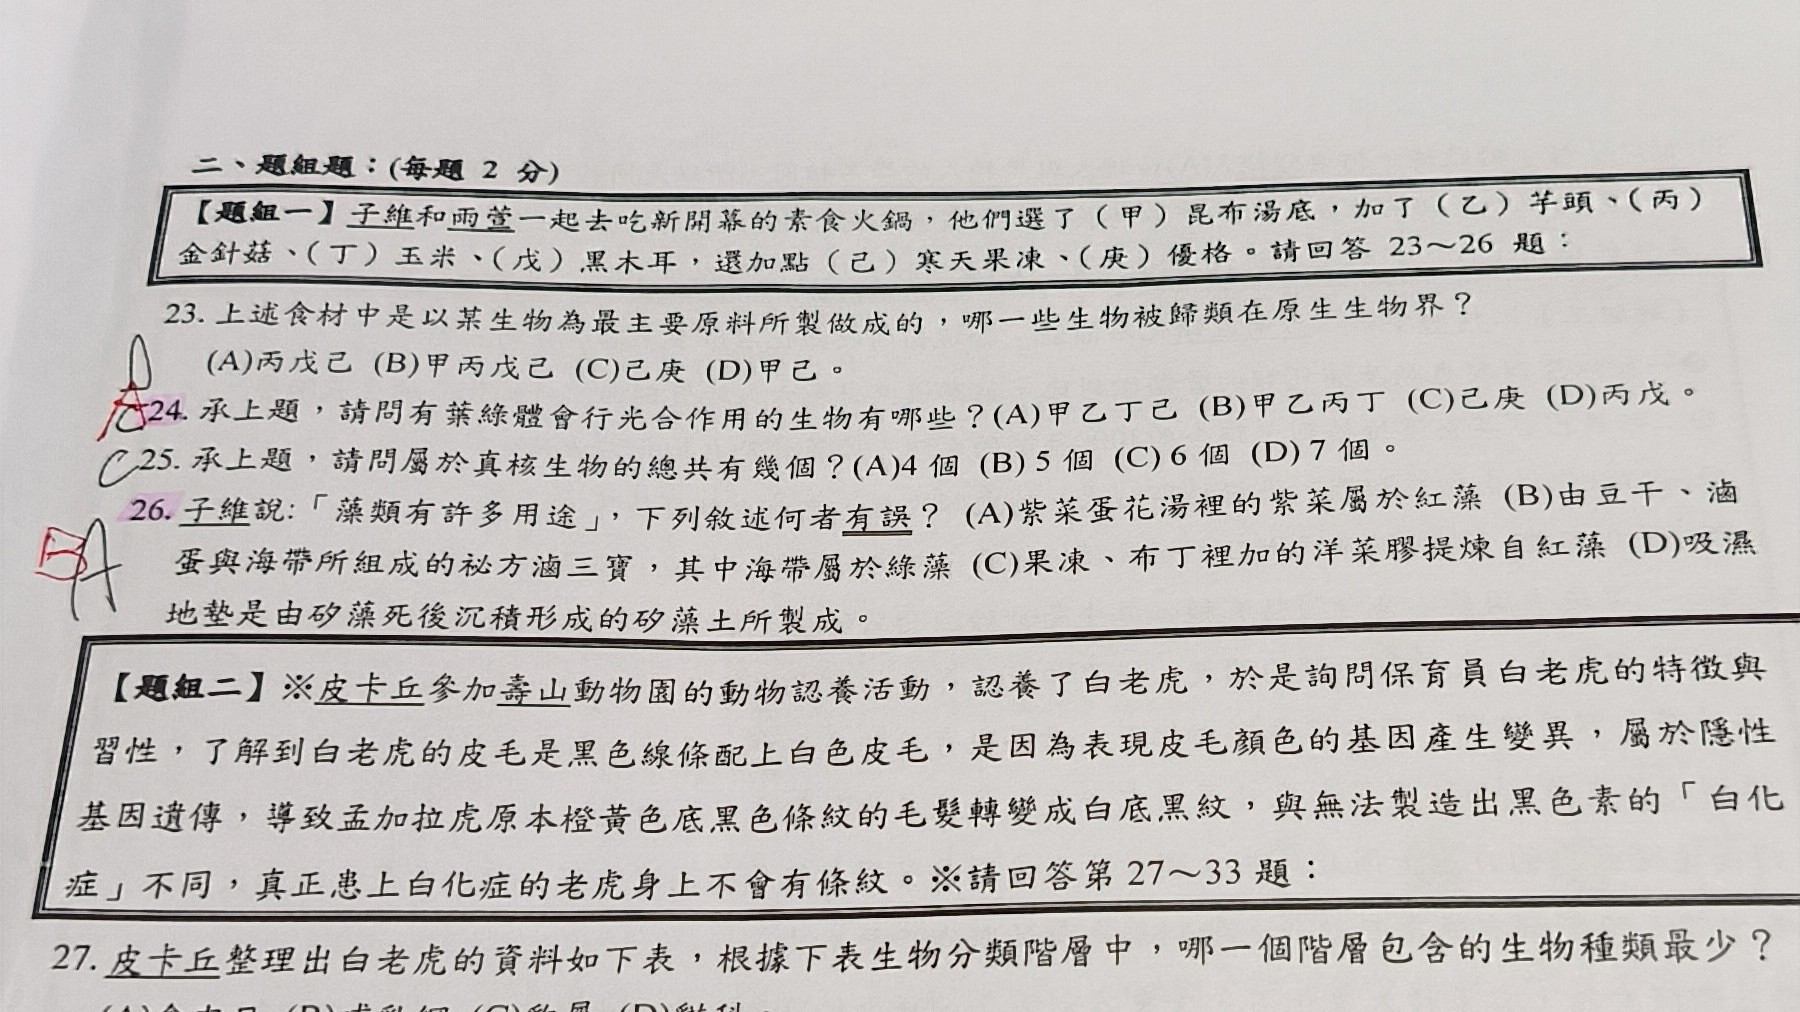 二、題組題：(每題 2 分)
【題組一】子維和雨萱一起去吃新開幕的素食火鍋，他們選了（甲）昆布湯底，加了（乙）芋頭、（丙）
金針菇、（丁）玉米、（戊）黑木耳，還加點（己）寒天果凍、（庚）優格。請回答 23～26 題：
23. 上述食材中是以某生物為最主要原料所製做成的，哪一些生物被歸類在原生生物界？
D (A)丙戊己 (B)甲丙戊己 (C)己庚 (D)甲己。
A 24. 承上題，請問有葉綠體會行光合作用的生物有哪些？(A)甲乙丁己 (B)甲乙丙丁 (C)己庚 (D)丙戊。
C 25. 承上題，請問屬於真核生物的總共有幾個？(A)4 個 (B) 5 個 (C) 6 個 (D) 7 個。
26. 子維說:「藻類有許多用途」，下列敘述何者有誤？ (A)紫菜蛋花湯裡的紫菜屬於紅藻 (B)由豆干、滷
B A 蛋與海帶所組成的祕方滷三寶，其中海帶屬於綠藻 (C)果凍、布丁裡加的洋菜膠提煉自紅藻 (D)吸濕
地墊是由矽藻死後沉積形成的矽藻土所製成。
【題組二】※皮卡丘參加壽山動物園的動物認養活動，認養了白老虎，於是詢問保育員白老虎的特徵與
習性，了解到白老虎的皮毛是黑色線條配上白色皮毛，是因為表現皮毛顏色的基因產生變異，屬於隱性
基因遺傳，導致孟加拉虎原本橙黃色底黑色條紋的毛髮轉變成白底黑紋，與無法製造出黑色素的「白化
症」不同，真正患上白化症的老虎身上不會有條紋。※請回答第 27～33 題：
27. 皮卡丘整理出白老虎的資料如下表，根據下表生物分類階層中，哪一個階層包含的生物種類最少？